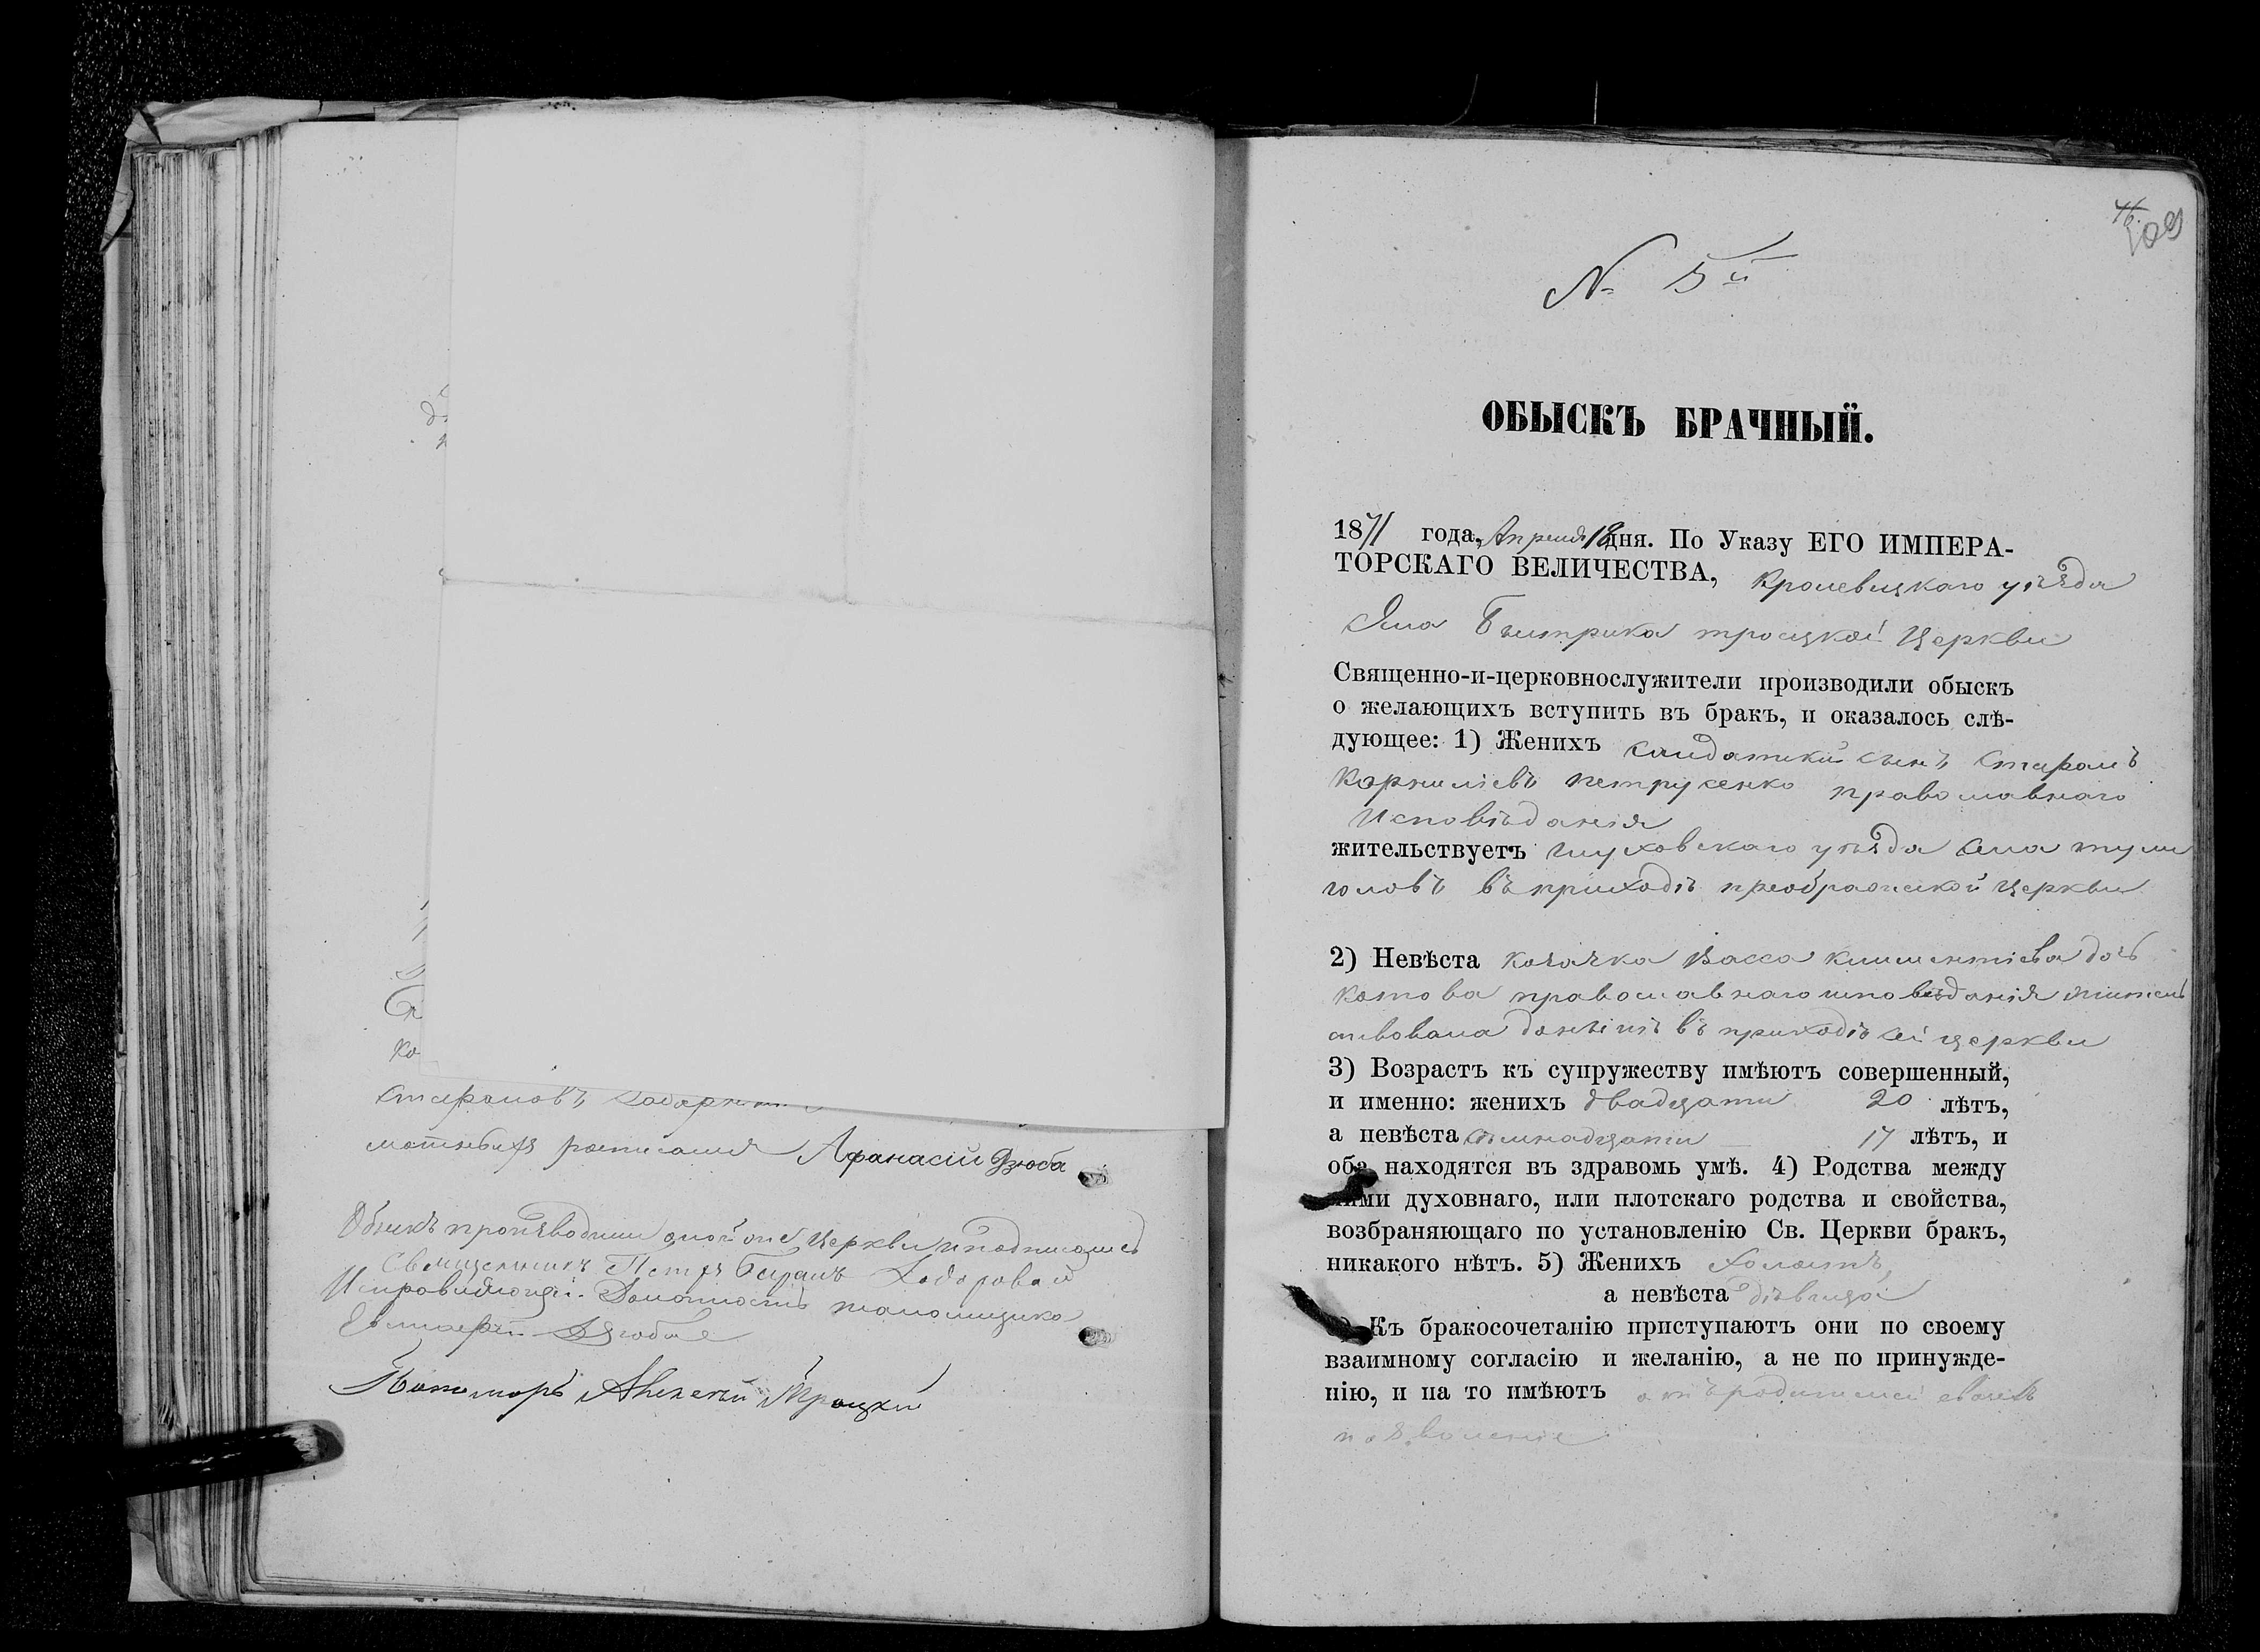 матнихъ росписался Афанасій Дзюба
Обыскъ производили оной Церкви и подписались
Священникъ Петръ
Исправляющій Должность паламщика
Евстафій Дзюба
Понамарь Алексѣй Троцкій
№ 5й
ОБЫСКЪ БРАЧНЫЙ.
1871 года, Апреля дня. По Указу ЕГО ИМПЕРА-
ТОРСКАГО ВЕЛИЧЕСТВА, Кролевецкаго уѣзда
Села Быстрика троицкой Церкви
Священно-и-церковнослужители производили обыскъ
о желающихъ вступить въ бракъ, и оказалось слѣ-
дующее: 1) Женихъ солдатскій сынъ Стефанъ
Корниліевъ Петрусенко православнаго
Исповѣданія
жительствуетъ глуховскаго уѣзда села тули
головъ въ приходѣ преображской Церкви
2) Невѣста козачка Васса Климентіева дочь
Котова православнаго исповѣданія жительс
ствовала донынѣ въ приходѣ сей церкви
3) Возрастъ къ супружеству имѣютъ совершенный,
и именно: женихъ двадцати 20 лѣтъ,
а невѣста семнадцати 17 лѣтъ, и
оба находятся въ здравомъ умѣ. 4) Родства между
ними духовнаго, или плотскаго родства и свойства,
возбраняющаго по установленію Св. Церкви бракъ,
никакого нѣтъ. 5) Женихъ холостъ,
а невѣста дѣвица
Къ бракосочетанію приступаютъ они по своему
взаимному согласію и желанію, а не по принужде-
нію, и на то имѣютъ отъ родителей своихъ
позволеніе